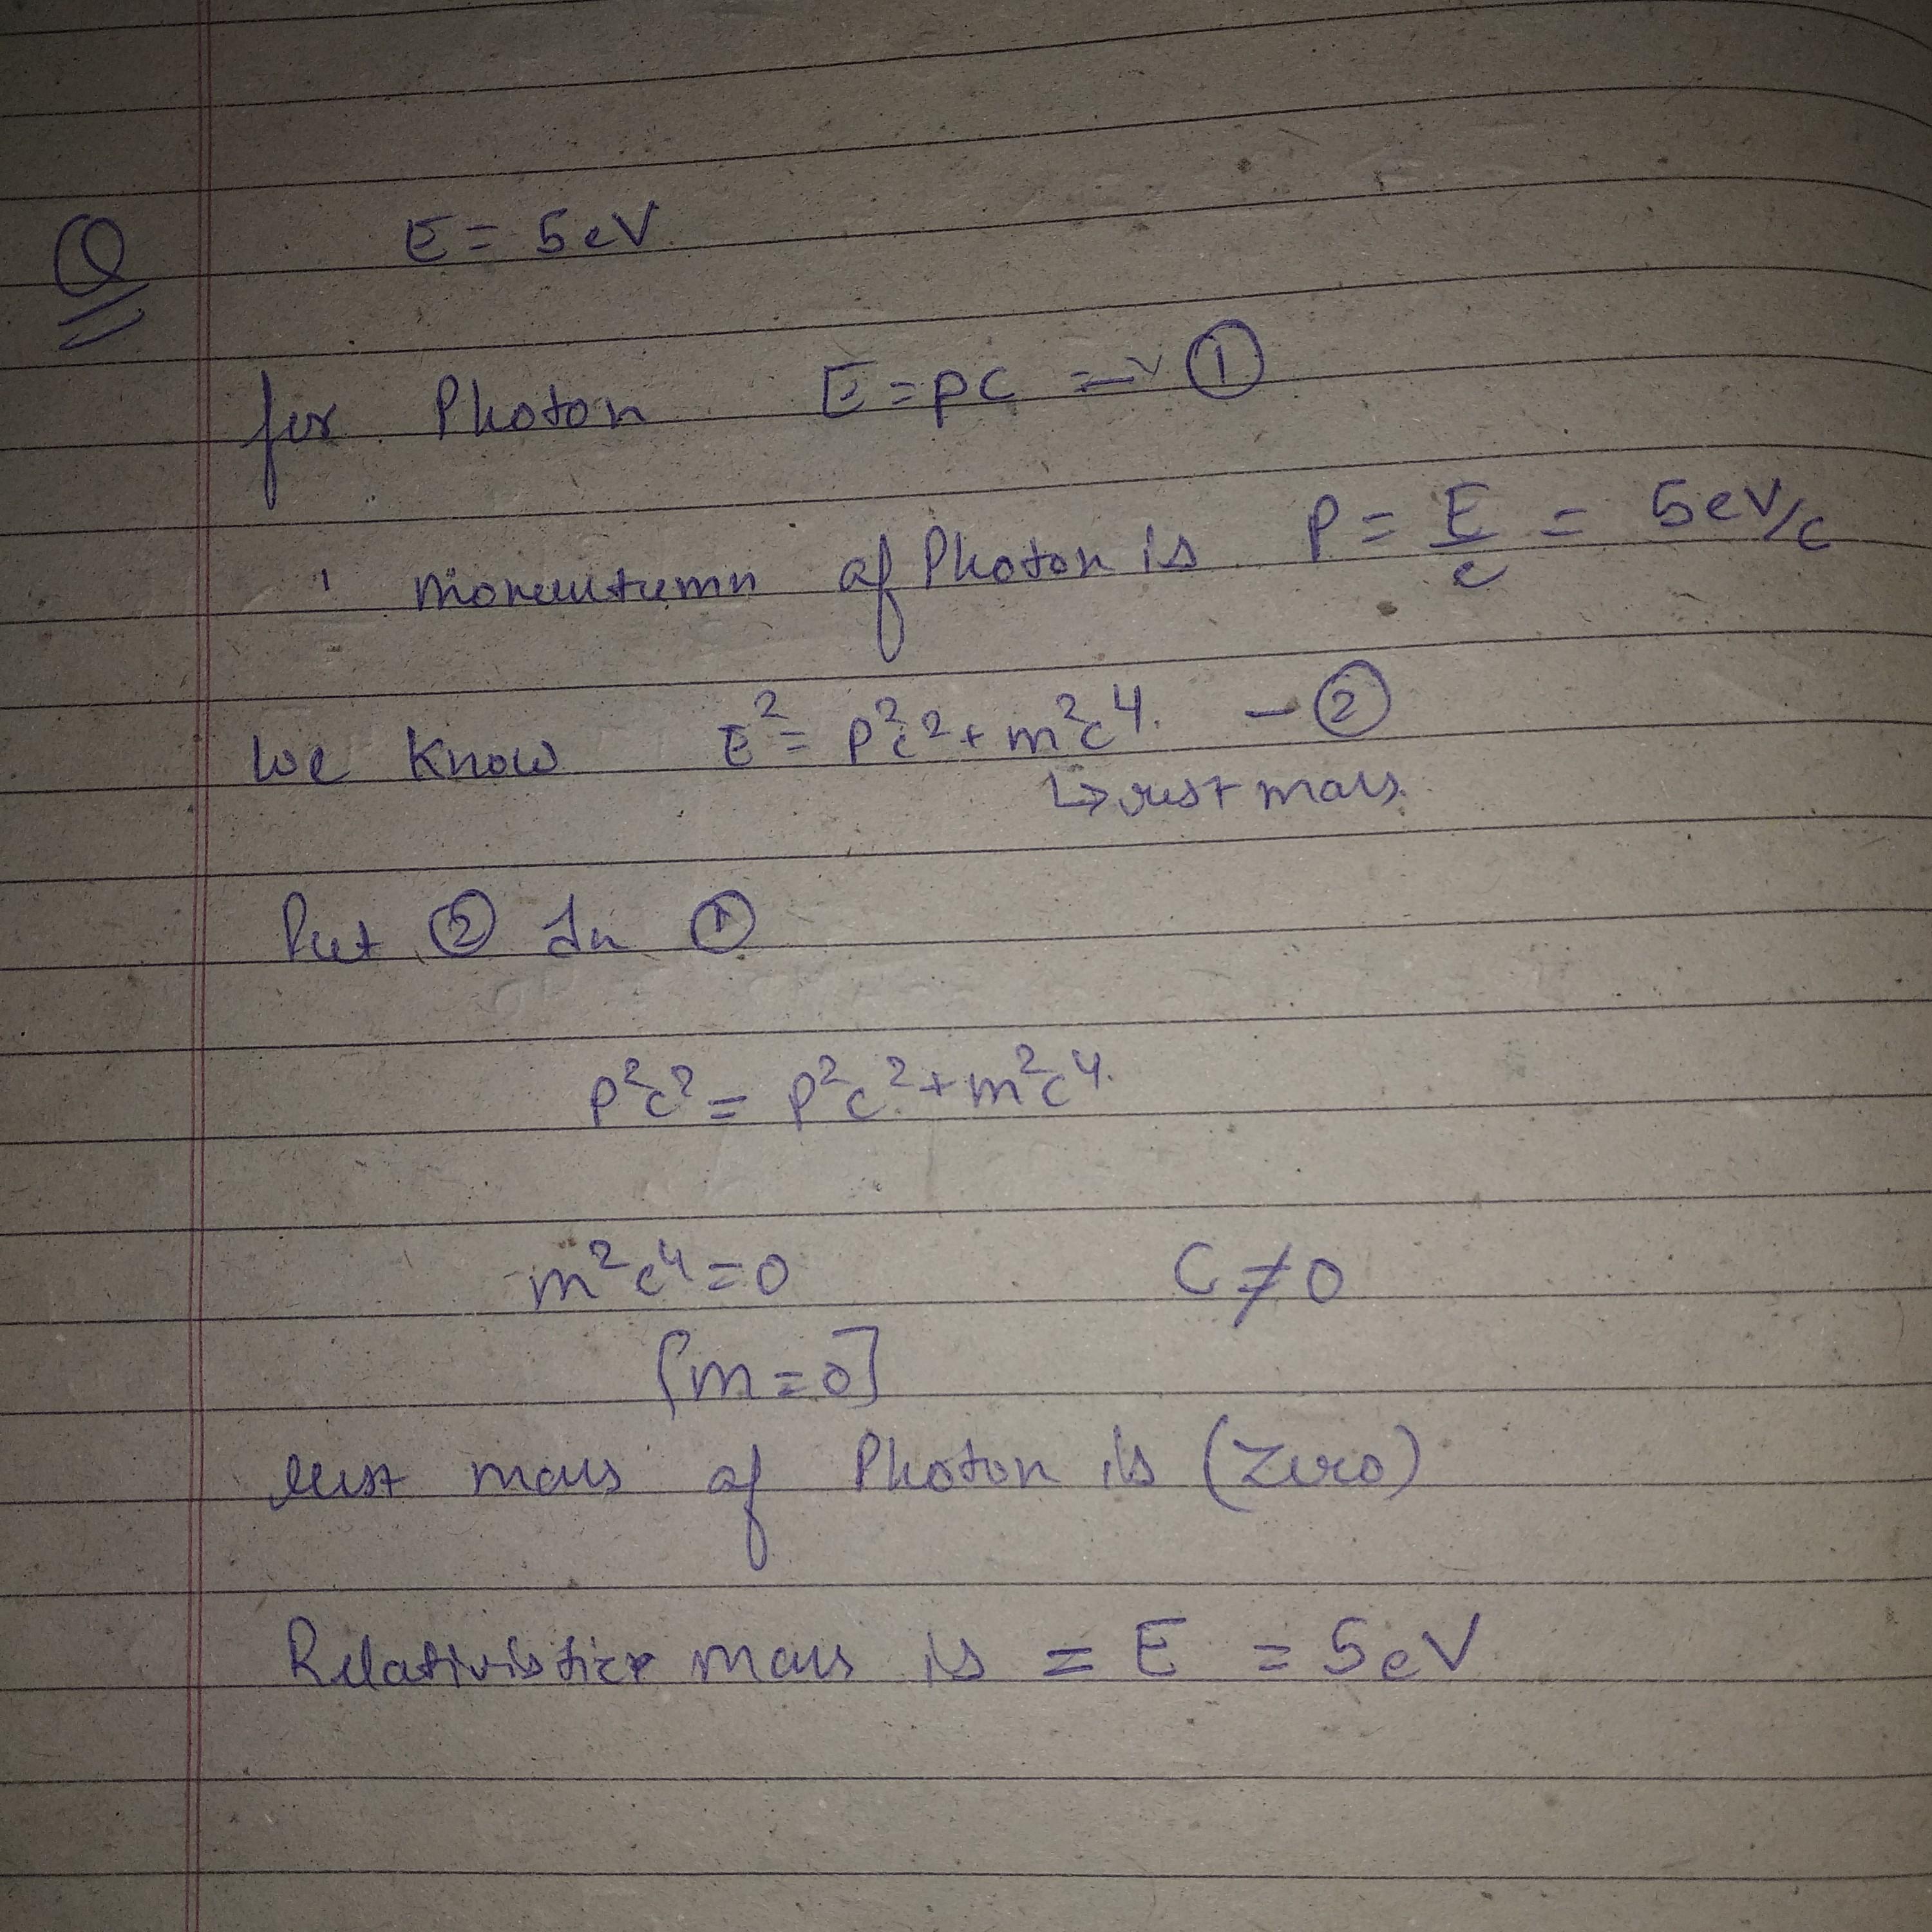 Q E = 5eV.
for Photon E = pc => ①
momentumn of Photon is P = E/c = 5eV/c
we know E² = p²c² + m²c⁴. - ②
↳ rest mass.
Put ② In ①
p²c² = p²c² + m²c⁴.
m²c⁴ = 0 C ≠ 0
[m = 0]
rest mass of Photon is (Zero)
Relativistic mass is = E = 5eV